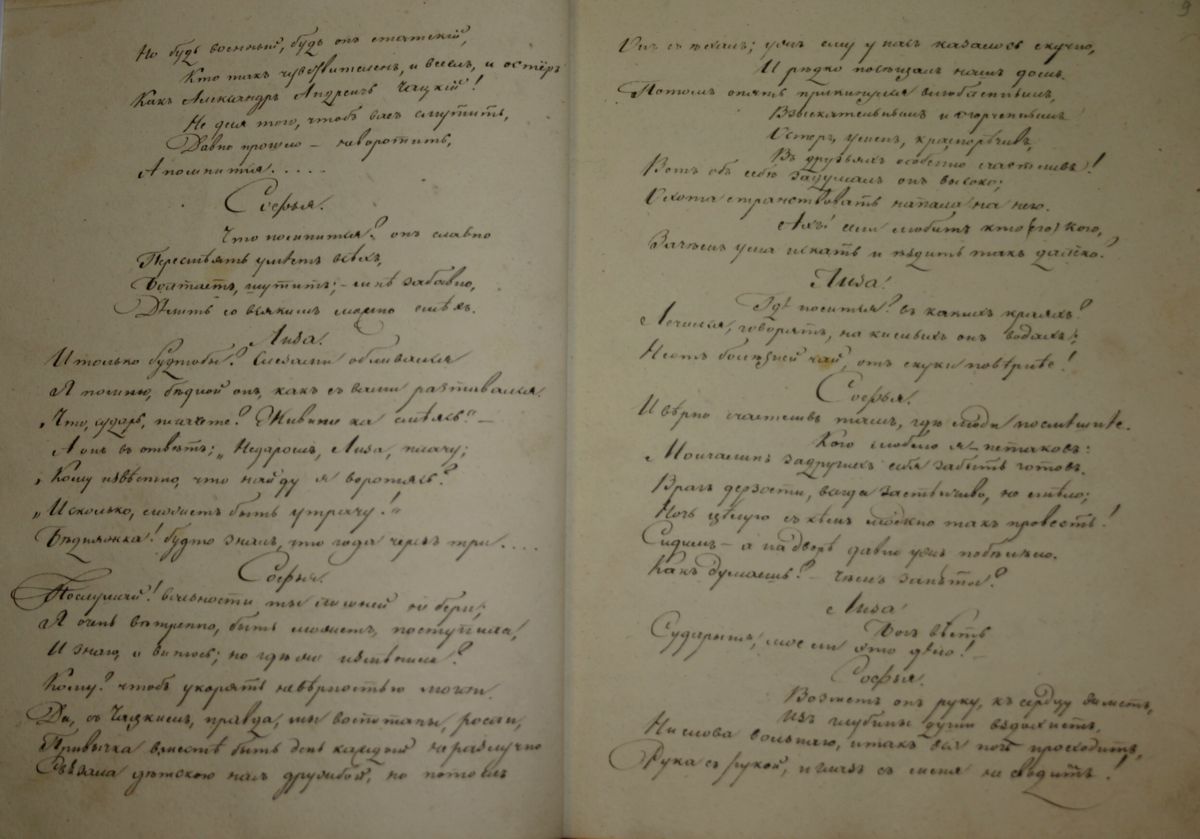 Но будь военный, будь онъ статскій,
Кто такъ чувствителенъ, и веселъ, и остёръ
Какъ Александръ Андреичъ Чацкій!
Не для того, чтобъ васъ смутить,
Давно прошло – неворотить,
А помнится.....
Софья.
Что помнится? онъ славно
Пересмѣять умѣетъ всѣхъ,
Болтаетъ, шутитъ; – мнѣ забавно,
Дѣлить со всякимъ можно смѣхъ.
Лиза!
И только будтобы? Слезами обливался
Я помню, бѣдной онъ, какъ съ вами разтавался.
„Что, сударь, плачете? Живите ка смѣясь“ –
А онъ въ отвѣтъ; „Недаромъ, Лиза, плачу;
„Кому извѣстно, что найду я воротясь?
„И сколько, можетъ быть утрачу!“
Бѣдняжка! будто зналъ, что года черезъ три....
Софья.
Послушай! вольности ты лишней не бери;
Я очень вѣтренно, быть можетъ, поступила,
И знаю, и винюсь; но гдѣ же измѣнила?
Кому? чтобъ укорять невѣрностью могли.
Да, съ Чацкимъ, правда, мы воспитаны, росли,
Привычка вмѣстѣ быть день каждой неразлучно
Связала дѣтскою насъ дружбой, но потомъ
9
Онъ съѣхалъ; ужъ ему у насъ казалось скучно,
И рѣдко посѣщалъ нашъ домъ.
Потомъ опять прикинулся влюбленнымъ,
Взыскательнымъ и огорченнымъ
Остеръ, уменъ, краснорѣчивъ,
Въ друзьяхъ особенно счастливъ!
Вотъ объ себѣ задумалъ онъ высоко;
Охота странствовать напала на него.
Ахъ! если любитъ кто (го) кого,
Зачѣмъ ума искать и ѣздить такъ далёко?
Лиза!
Гдѣ носится? въ какихъ краяхъ?
Лечился, говорятъ, на кислыхъ онъ водахъ;
Неотъ болѣзней чай, отъ скуки повѣрнѣе!
Софья.
И вѣрно счастливъ тамъ, гдѣ люди посмѣшнѣе.
Кого люблю я – нетаковъ:
Молчалинъ задругихъ себя забыть готовъ.
Врагъ дерзости, всегда застѣнчиво, не смѣло;
Ночь цѣлую съ кѣмъ можно такъ провесть!
Сидимъ – а на дворѣ давно ужъ побѣлѣло.
Какъ думаешь? – Чѣмъ заняты?
Лиза!
Богъ вѣсть
Сударыня, мое ли это дѣло! –
Софья.
Возметъ онъ руку, къ сердцу жметъ,
Изъ глубины души вздохнетъ,
Ни слова вольнаго, и такъ вся ночь проходитъ,
Рука съ рукой, и глазъ съ меня не сводитъ!